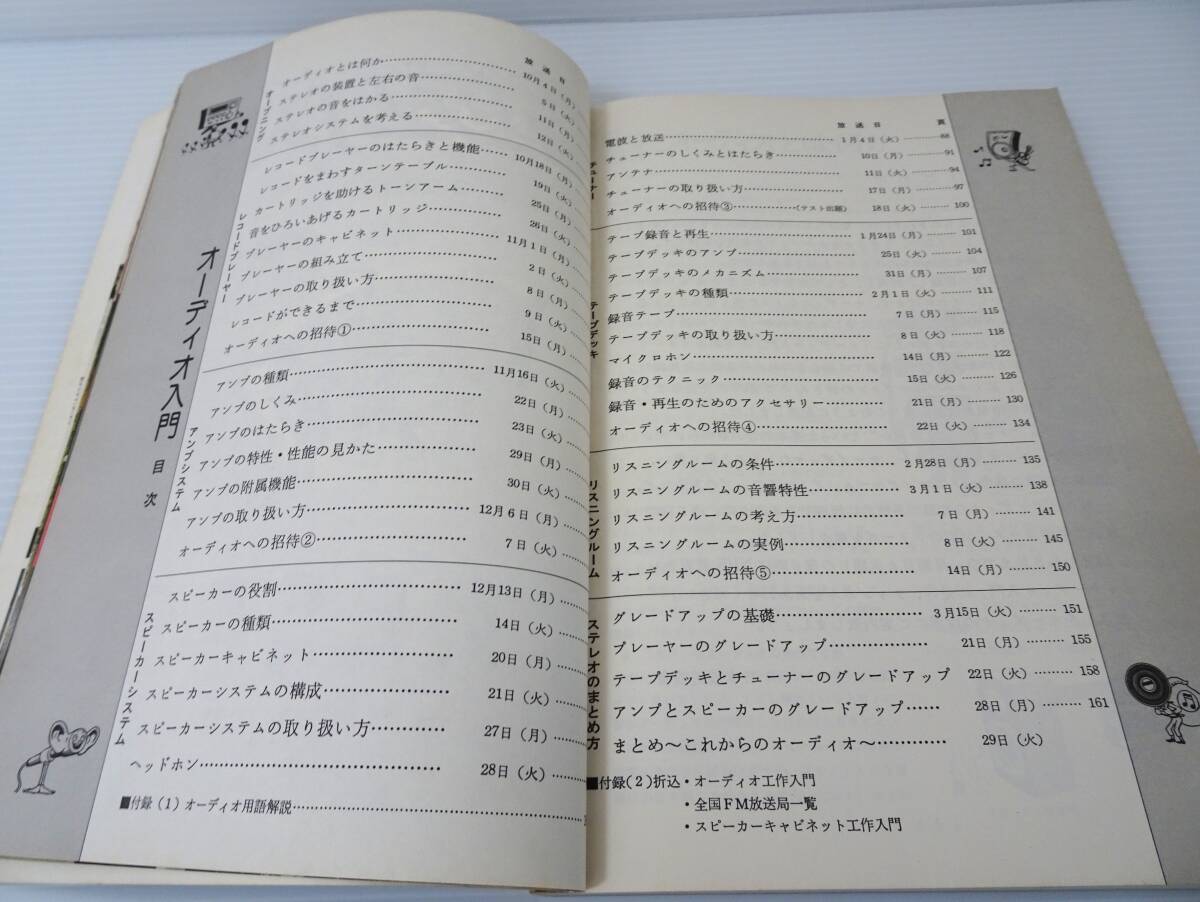 オーディオ入門
目次
放送日
オープニング
オーディオとは何か 10月4日(月)
ステレオの装置と左右の音 5日(火)
ステレオの音をはかる 11日(月)
ステレオシステムを考える 12日(火)
レコードプレーヤー
レコードプレーヤーのはたらきと機能 10月18日(月)
レコードをまわすターンテーブル 19日(火)
カートリッジを助けるトーンアーム 25日(月)
音をひろいあげるカートリッジ 26日(火)
プレーヤーのキャビネット 11月1日(月)
プレーヤーの組み立て 2日(火)
プレーヤーの取り扱い方 8日(月)
レコードができるまで 9日(火)
オーディオへの招待① 15日(月)
アンプシステム
アンプの種類 11月16日(火)
アンプのしくみ 22日(月)
アンプのはたらき 23日(火)
アンプの特性・性能の見かた 29日(月)
アンプの附属機能 30日(火)
アンプの取り扱い方 12月6日(月)
オーディオへの招待② 7日(火)
スピーカーシステム
スピーカーの役割 12月13日(月)
スピーカーの種類 14日(火)
スピーカーキャビネット 20日(月)
スピーカーシステムの構成 21日(火)
スピーカーシステムの取り扱い方 27日(月)
ヘッドホン 28日(火)
■付録(1)オーディオ用語解説
放送日 頁
チューナー
電波と放送 1月4日(火) 88
チューナーのしくみとはたらき 10日(月) 91
アンテナ 11日(火) 94
チューナーの取り扱い方 17日(月) 97
オーディオへの招待③ (テスト出題) 18日(火) 100
テープデッキ
テープ録音と再生 1月24日(月) 101
テープデッキのアンプ 25日(火) 104
テープデッキのメカニズム 31日(月) 107
テープデッキの種類 2月1日(火) 111
録音テープ 7日(月) 115
テープデッキの取り扱い方 8日(火) 118
マイクロホン 14日(月) 122
録音のテクニック 15日(火) 126
録音・再生のためのアクセサリー 21日(月) 130
オーディオへの招待④ 22日(火) 134
リスニングルーム
リスニングルームの条件 2月28日(月) 135
リスニングルームの音響特性 3月1日(火) 138
リスニングルームの考え方 7日(月) 141
リスニングルームの実例 8日(火) 145
オーディオへの招待⑤ 14日(月) 150
ステレオのまとめ方
グレードアップの基礎 3月15日(火) 151
プレーヤーのグレードアップ 21日(月) 155
テープデッキとチューナーのグレードアップ 22日(火) 158
アンプとスピーカーのグレードアップ 28日(月) 161
まとめ〜これからのオーディオ〜 29日(火)
■付録(2)折込・オーディオ工作入門
・全国FM放送局一覧
・スピーカーキャビネット工作入門